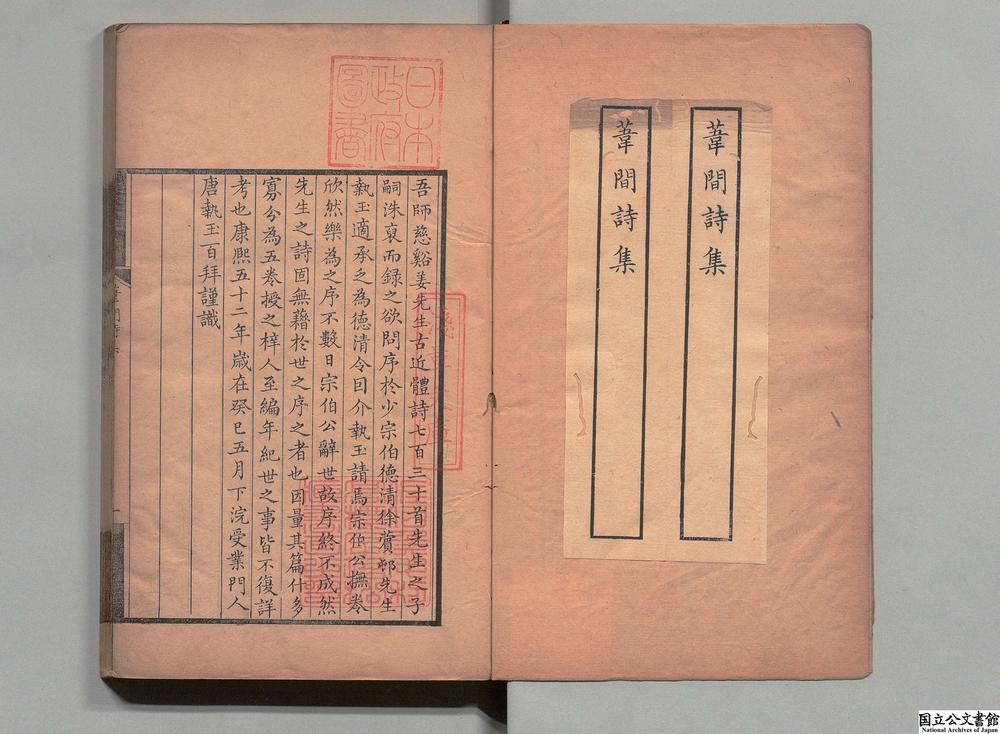 葦間詩集
葦間詩集
日本
政府
圖書
吾師慈谿姜先生古近體詩七百三十首先生之子
嗣洙裒而録之欲問序於少宗伯德清徐蘋邨先生
執玉適承乏為德清令因介執玉請焉宗伯公撫卷
欣然樂為之序不數日宗伯公辭世故序終不成然
先生之詩固無藉於世之序之者也因量其篇什多
寡分為五卷授之梓人至編年紀世之事皆不復詳
考也康熙五十二年歲在癸巳五月下浣受業門人
唐執玉百拜謹識
国立公文書館
National Archives of Japan